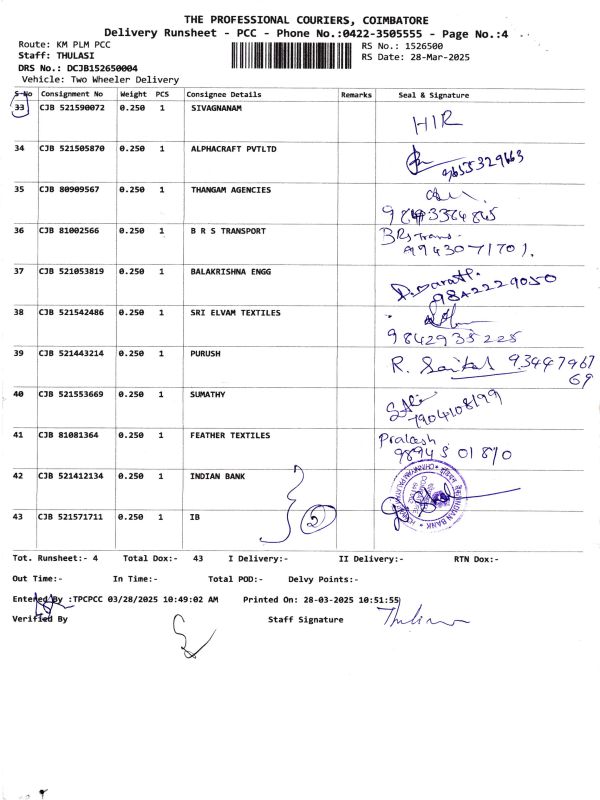 THE PROFESSIONAL COURIERS, COIMBATORE
Delivery Runsheet - PCC - Phone No.:0422-3505555 - Page No.:4
Route: KM PLM PCC
RS No.: 1526500
Staff: THULASI
RS Date: 28-Mar-2025
DRS No.: DCJB152650004
Vehicle: Two Wheeler Delivery
S-No Consignment No Weight PCS Consignee Details Remarks Seal & Signature
33 CJB 521590072 0.250 1 SIVAGNANAM HIR
34 CJB 521505870 0.250 1 ALPHACRAFT PVTLTD
35 CJB 80909567 0.250 1 THANGAM AGENCIES
36 CJB 81002566 0.250 1 B R S TRANSPORT BRS Trans.
9943071701.
37 CJB 521053819 0.250 1 BALAKRISHNA ENGG
9842229050
38 CJB 521542486 0.250 1 SRI ELVAM TEXTILES
9842935225
39 CJB 521443214 0.250 1 PURUSH R. 93447967
69
40 CJB 521553669 0.250 1 SUMATHY
7904108199
41 CJB 81081364 0.250 1 FEATHER TEXTILES Prakash
42 CJB 521412134 0.250 1 INDIAN BANK INDIAN BANK
43 CJB 521571711 0.250 1 IB 2
Tot. Runsheet:- 4 Total Dox:- 43 I Delivery:- II Delivery:- RTN Dox:-
Out Time:- In Time:- Total POD:- Delvy Points:-
Entered By :TPCPCC 03/28/2025 10:49:02 AM Printed On: 28-03-2025 10:51:55
Verified By Staff Signature